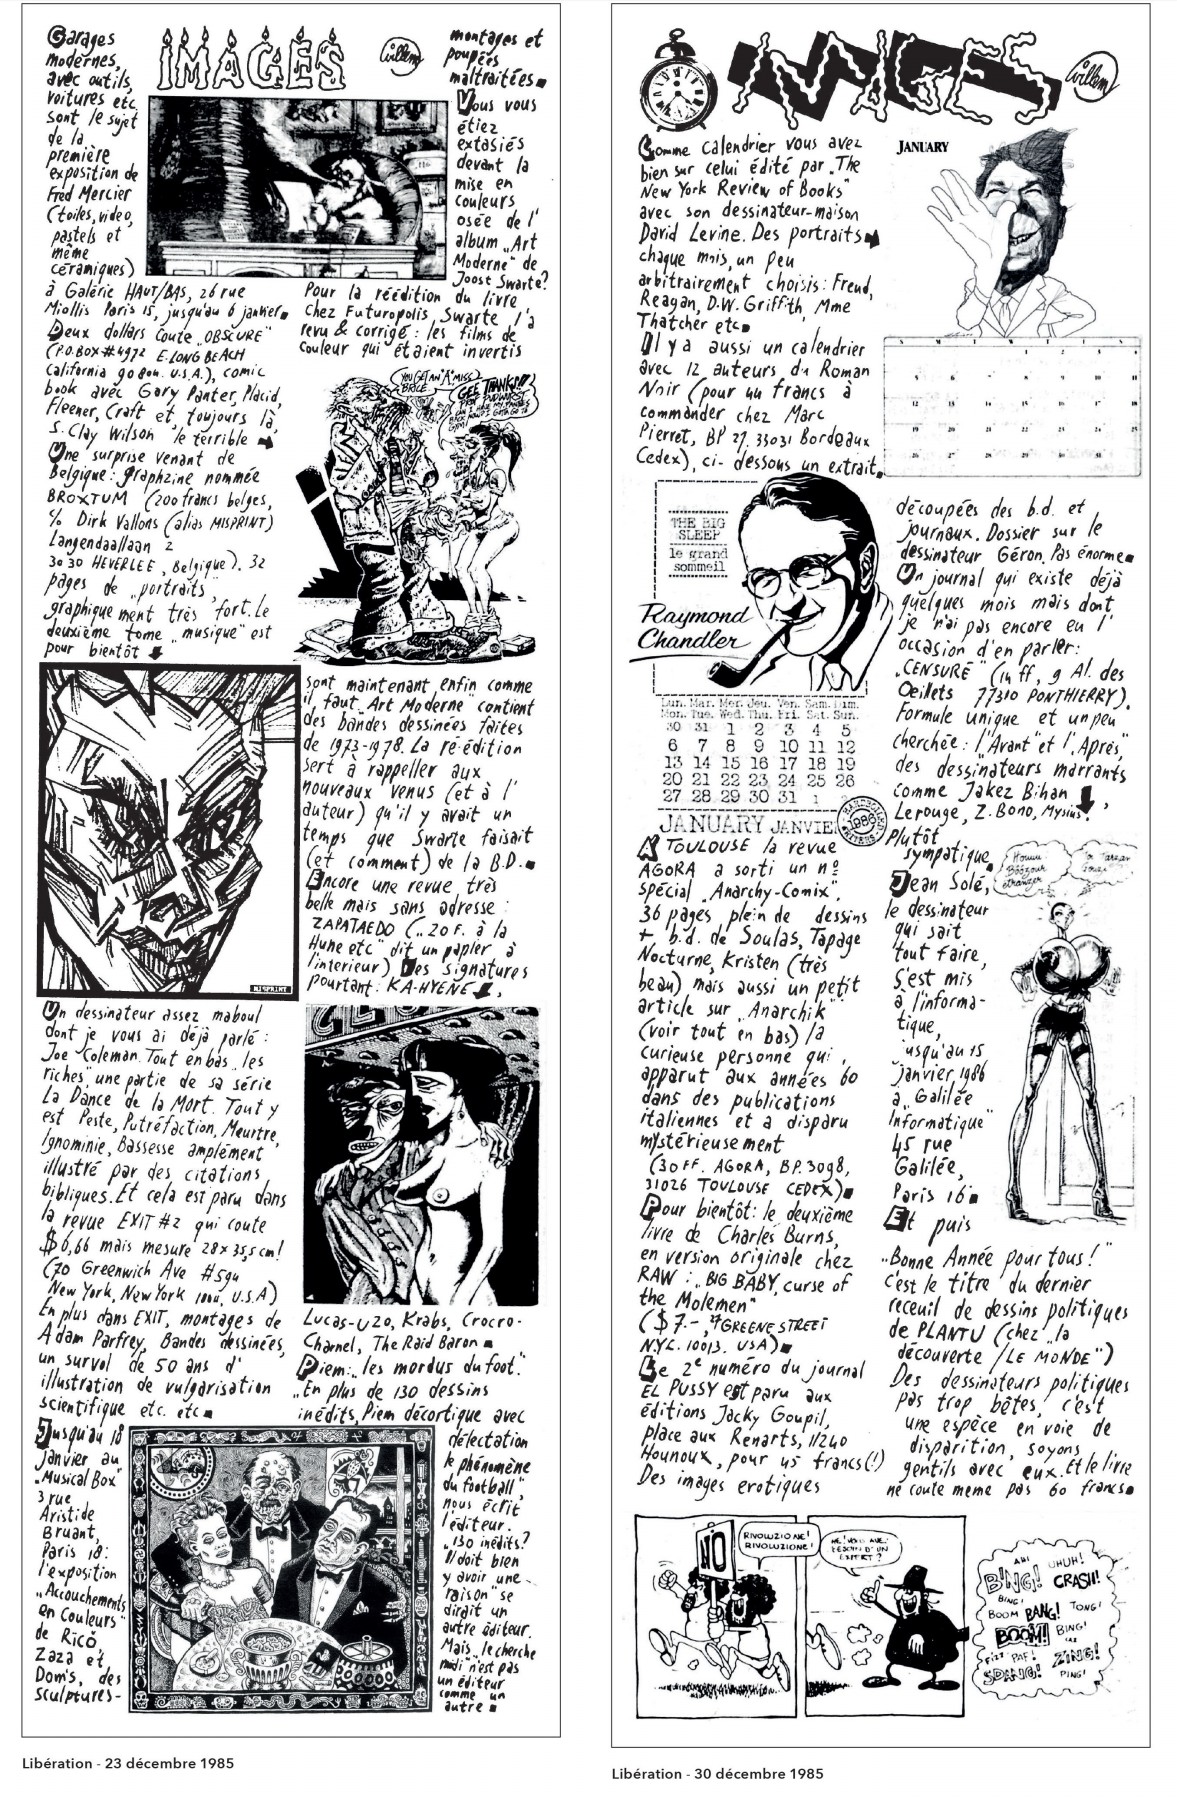 IMAGES
Willem
Garages
modernes,
avec outils,
voitures etc.
sont le sujet
de la
première
exposition de
Fred Mercier
(toiles, video,
pastels et
même
céramiques)
à Galérie HAUT/BAS, 26 rue
Miollis Paris 15, jusqu'au 6 janvier.
Deux dollars coute "OBSCURE"
(P.O.BOX #4972 E. LONG BEACH
California 90804. U.S.A.), comic
book avec Gary Panter, Placid,
Fleener, Craft et, toujours là,
S. Clay Wilson le terrible
Une surprise venant de
Belgique: graphzine nommée
BROXTUM (200 francs belges,
℅ Dirk Vallons (alias MISPRINT)
Langendaallaan 2
3030 HEVERLEE, Belgique). 32
pages de "portraits",
graphiquement très fort. Le
deuxième tome "musique" est
pour bientôt
MISPRINT
Un dessinateur assez maboul
dont je vous ai déjà parlé:
Joe Coleman. Tout en bas "les
riches", une partie de sa série
La Dance de la Mort. Tout y
est Peste, Putréfaction, Meurtre,
Ignominie, Bassesse amplement
illustré par des citations
bibliques. Et cela est paru dans
la revue EXIT #2 qui coute
$6,66 mais mesure 28 x 35,5 cm!
(70 Greenwich Ave #594
New York, New York 10011, U.S.A)
En plus dans EXIT, montages de
Adam Parfrey, Bandes dessinées,
un survol de 50 ans d'
illustration de vulgarisation
scientifique etc. etc.
Jusqu'au 18
janvier au
"Musical Box"
3 rue
Aristide
Bruant,
Paris 18:
l'exposition
"Accouchements
en Couleurs"
de Rico,
Zaza et
Dom's, des
sculptures-
montages et
poupées
maltraitées.
Vous vous
étiez
extasiés
devant la
mise en
couleurs
osée de l'
album "Art
Moderne" de
Joost Swarte?
Pour la réédition du livre
Chez Futuropolis, Swarte l'a
revu & corrigé: les films de
couleur qui étaient invertis
YOU GET AN "A" MISS BRICE
GEE THANKS!!!
sont maintenant enfin comme
il faut. "Art Moderne" contient
des bandes dessinées faites
de 1973-1978. La ré-édition
sert à rappeller aux
nouveaux venus (et à l'
auteur) qu'il y avait un
temps que Swarte faisait
(et comment) de la B.D.
Encore une revue très
belle mais sans adresse:
ZAPATAEDO ("20 F. à la
Hune etc" dit un papier à
l'interieur). Des signatures
pourtant: KA-HYENE,
Lucas-Uzo, Krabs, Crocro-
Chanel, The Raid Baron
Piem: "les mordus du foot".
"En plus de 130 dessins
inédits, Piem décortique avec
délectation
le phénomène
du football",
nous écrit
l'éditeur.
"130 inédits?
Il doit bien
y avoir une
raison" se
dirait un
autre éditeur.
Mais "le cherche
midi" n'est pas
un éditeur
comme un
autre
Libération - 23 décembre 1985
IMAGES
Willem
Comme calendrier vous avez
bien sur celui édité par "The
New York Review of Books"
avec son dessinateur-maison
David Levine. Des portraits
chaque mois, un peu
arbitrairement choisis: Freud,
Reagan, D.W. Griffith, Mme
Thatcher etc.
Il y a aussi un calendrier
avec 12 auteurs du Roman
Noir (pour 40 francs à
commander chez Marc
Pierret, BP 27. 33031 Bordeaux
Cedex), ci-dessous un extrait.
JANUARY
S M T W T F S
1 2 3 4
5 6 7 8 9 10 11
12 13 14 15 16 17 18
19 20 21 22 23 24 25
26 27 28 29 30 31
THE BIG
SLEEP
le grand
sommeil
Raymond
Chandler
Lun. Mar. Mer. Jeu. Ven. Sam. Dim.
Mon. Tue. Wed. Thu. Fri. Sat. Sun.
30 31 1 2 3 4 5
6 7 8 9 10 11 12
13 14 15 16 17 18 19
20 21 22 23 24 25 26
27 28 29 30 31 1 2
JANUARY JANVIE
1986
A TOULOUSE la revue
AGORA a sorti un nº
spécial "Anarchy-Comix".
36 pages plein de dessins
+ b.d. de Soulas, Tapage
Nocturne, Kristen (très
beau) mais aussi un petit
article sur "Anarchik"
(voir tout en bas) la
curieuse personne qui
apparut aux années 60
dans des publications
italiennes et a disparu
mystérieusement
(30 FF. AGORA, BP. 3098,
31026 TOULOUSE CEDEX)
Pour bientôt: le deuxième
livre de Charles Burns,
en version originale chez
RAW: "BIG BABY, curse of
the Molemen"
($7.-, 27 GREENE STREET
N.Y.C. 10013. USA)
Le 2e numéro du journal
EL PUSSY est paru aux
éditions Jacky Goupil,
place aux Renarts, 11240
Hounoux, pour 45 francs (!)
Des images erotiques
découpées des b.d. et
journaux. Dossier sur le
dessinateur Géron. Pas énorme
Un journal qui existe déjà
quelques mois mais dont
je n'ai pas encore eu l'
occasion d'en parler:
"CENSURE" (14 ff, 9 Al. des
Oeillets 77310 PONTHIERRY).
Formule unique et un peu
cherchée: l'"Avant" et l'"Après",
des dessinateurs marrants
comme Jakez Bihan,
Lerouge, Z. Bono, Mysius.
Plutôt
sympatique.
Jean Solé,
le dessinateur
qui sait
tout faire,
s'est mis
à l'informa-
tique,
jusqu'au 15
janvier 1986
à "Galilée
Informatique"
45 rue
Galilée,
Paris 16
Et puis
"Bonne Année pour tous!"
C'est le titre du dernier
receuil de dessins politiques
de PLANTU (chez "la
découverte / LE MONDE")
Des dessinateurs politiques
pas trop bêtes, c'est
une espèce en voie de
disparition, soyons
gentils avec eux. Et le livre
ne coute meme pas 60 francs
NO
RIVOLUZIONE!
RIVOLUZIONE!
AH!
UHUH!
BING! CRASH!
BING!
BOOM BANG! TONG!
BOOM! BING!
FIZZ PAF! ZING!
SPANG! PING!
Libération - 30 décembre 1985